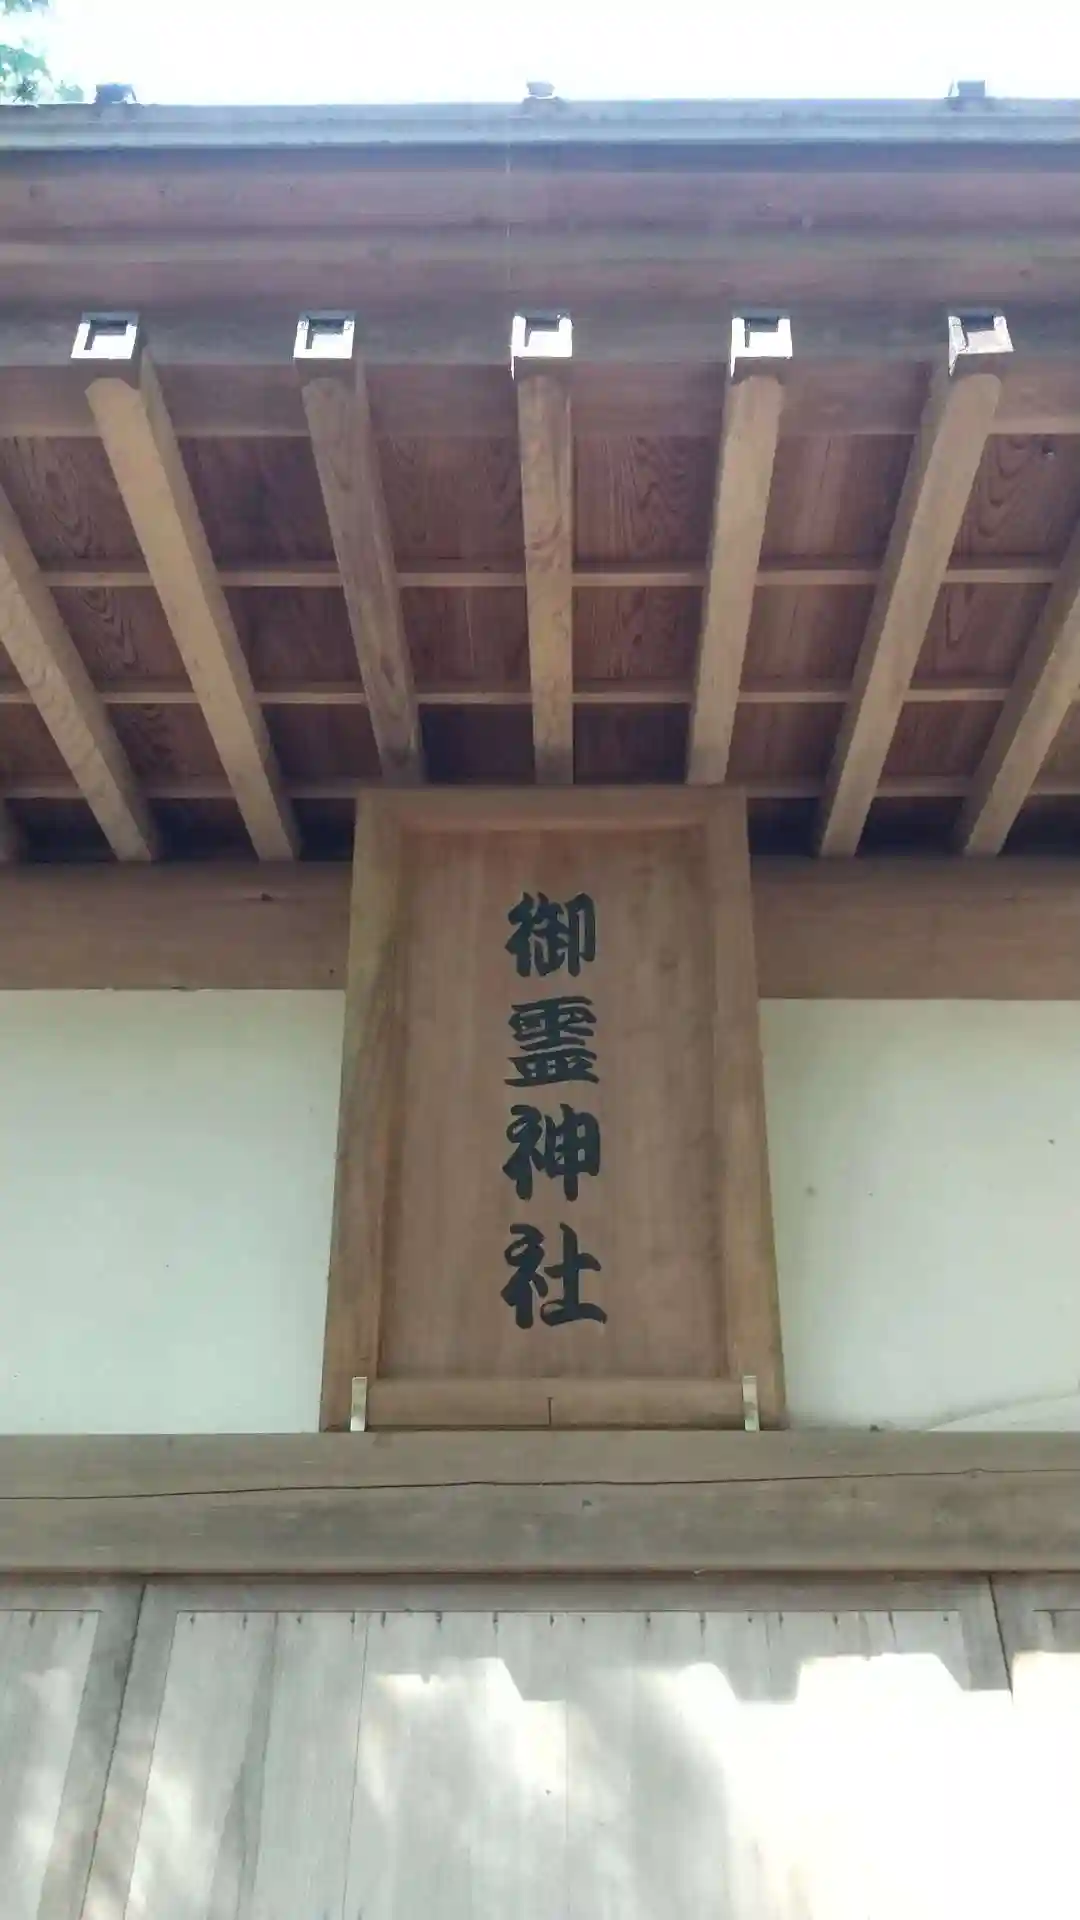 御霊神社